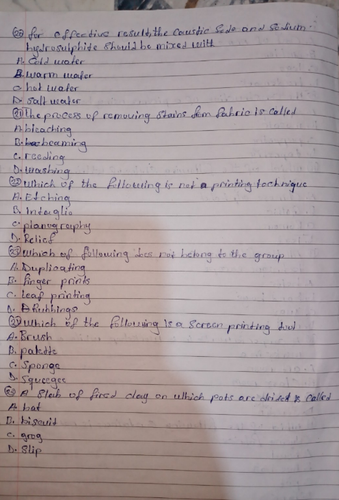 60 for effective results the caustic Soda and Sodium
hydrosulphite should be mixed with
A. Cold water
B. warm water
C. hot water
D. salt water
61 The process of removing stains from fabric is called
A. bleaching
B. beaming
C. reeding
D. washing
62 Which of the following is not a printing technique
A. Etching
B. Intaglio
C. planography
D. Relief
63 Which of following does not belong to the group
A. Duplicating
B. finger prints
C. Leaf printing
D. Rubbings
64 Which of the following is a Screen printing tool
A. Brush
B. palette
C. Sponge
D. Squeegee
65 A Slab of fired clay on which pots are dried is called
A. bat
B. biscuit
C. grog
D. Slip